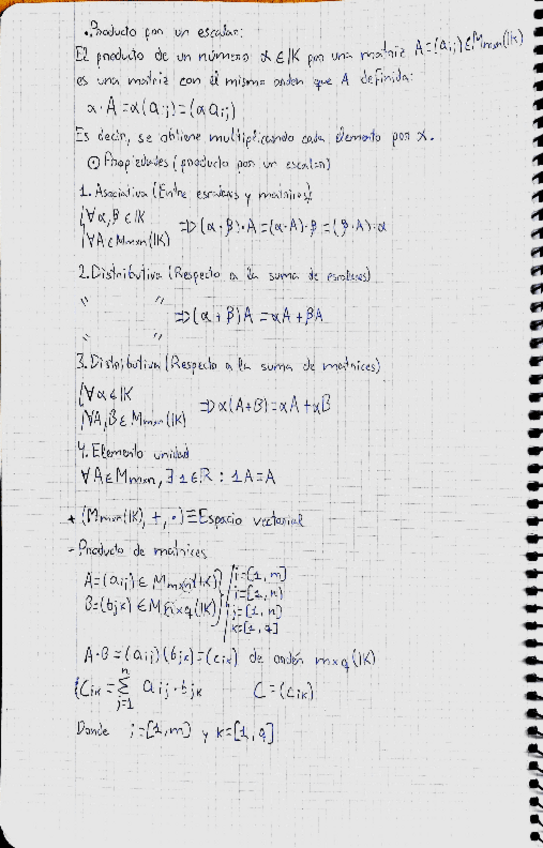 • Producto por un escalar:
El producto de un número α ∈ IK por una matriz A=(aij) ∈ Mmxn(IK)
es una matriz con el mismo orden que A definida:
α·A = α(aij) = (α aij)
Es decir, se obtiene multiplicando cada elemento por α.
⊙ Propiedades (producto por un escalar)
1. Asociativa (Entre escalares y matrices)
∀α,β ∈ IK
∀A ∈ Mmxn(IK) ⇒ (α·β)·A = (α·A)·β = (β·A)·α
2. Distributiva (Respecto a la suma de escalares)
" "
⇒ (α + β)A = αA + βA
" "
3. Distributiva (Respecto a la suma de matrices)
∀α ∈ IK
∀A,B ∈ Mmxn(IK) ⇒ α(A+B) = αA + αB
4. Elemento unidad
∀A ∈ Mmxn, ∃ 1 ∈ R : 1A = A
* (Mmxn(IK), +, ·) ≡ Espacio vectorial
- Producto de matrices
A = (aij) ∈ Mmxn(IK) / i=[1, m]
j=[1, n]
B = (bjk) ∈ Mnxq(IK) / j=[1, n]
k=[1, q]
A·B = (aij)(bjk) = (cik) de orden mxq (IK)
(Cik = n∑j=1 aij·bjk C = (cik)
Donde i=[1,m] y k=[1,q]